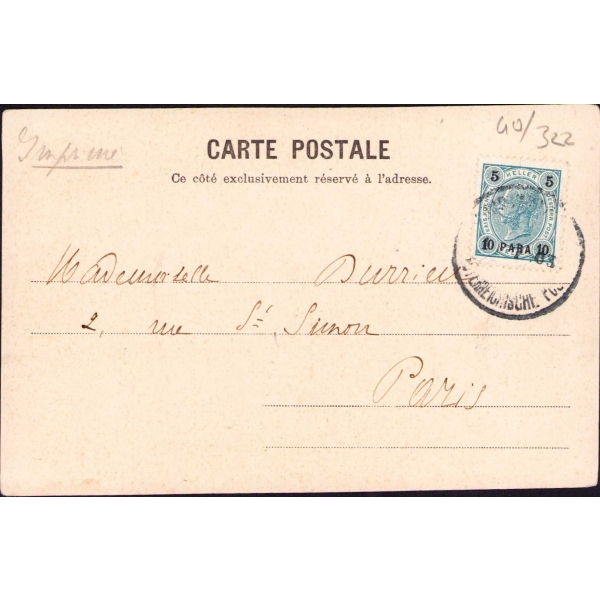 40/322
Imprimé
CARTE POSTALE
Ce côté exclusivement réservé à l'adresse.
5 HELLER 5
10 PARA 10
03
REICHISCHE
Mademoiselle Durrieu
2, rue St Simon
Paris